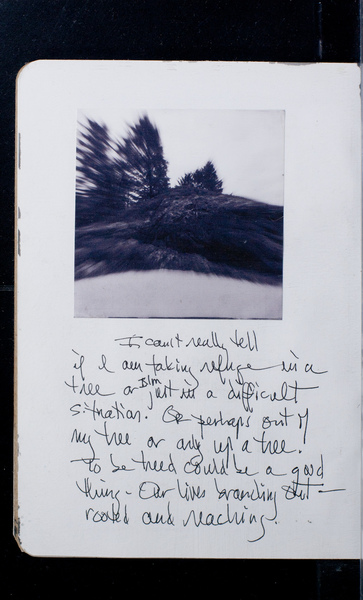 I can't really tell
if I am taking refuge in a
tree or I'm just in a difficult
situation. Or perhaps out of
my tree or only up a tree.
To be treed could be a good
thing - Our lives branching out -
rooted and reaching.